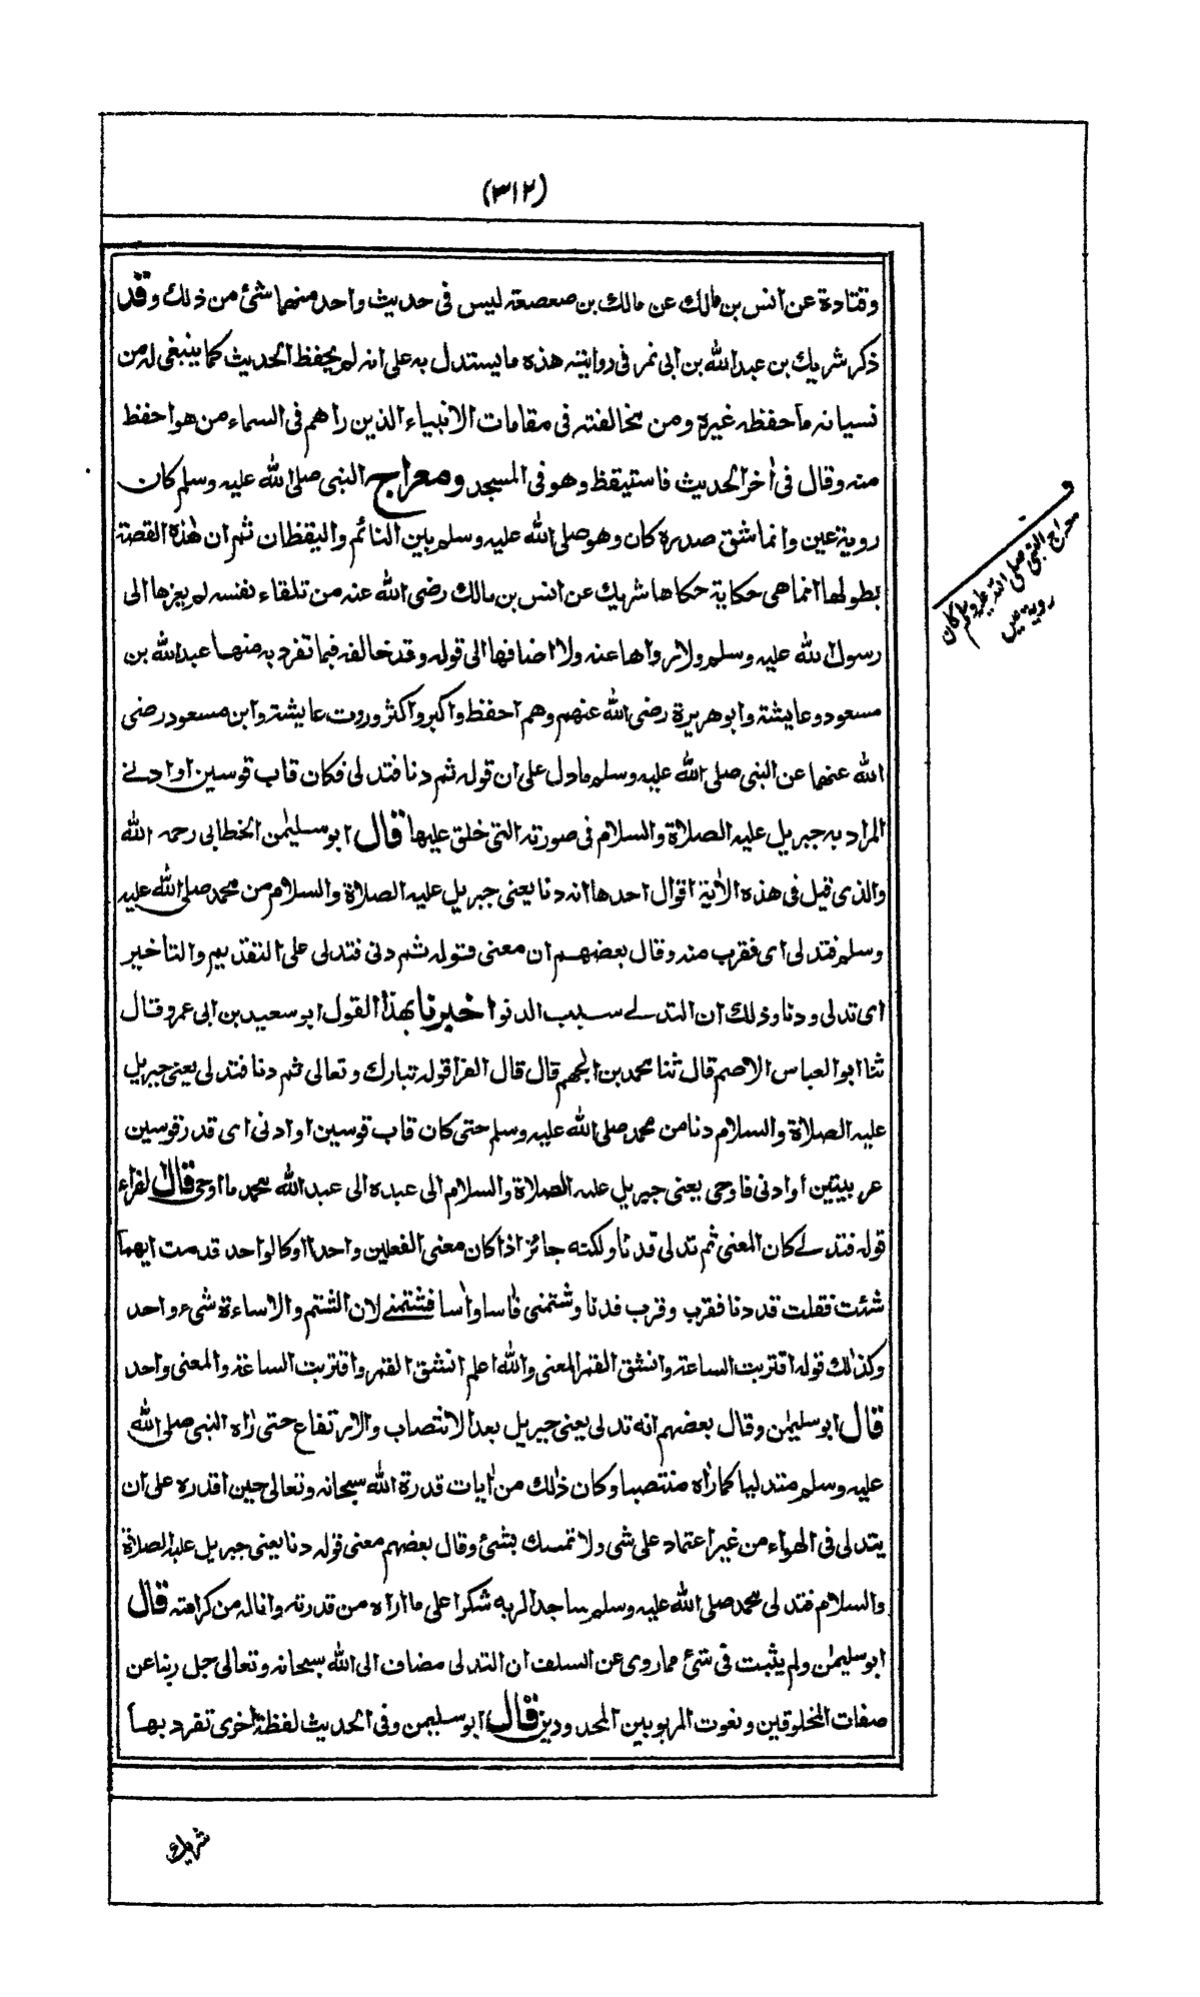 (٣١٢)
وقتادة عن انس بن مالك عن مالك بن صعصعة ليس فى حديث واحد منهما شئ من ذلك وقد
ذكر شريك بن عبد الله بن ابى نمر فى روايته هذه ما يستدل به على انه لم يحفظ الحديث كما ينبغى له من
نسيانه ما حفظه غيره ومن مخالفته فى مقامات الانبياء الذين راهم فى السماء من هو احفظ
منه وقال فى اٰخر الحديث فاستيقظ وهو فى المسجد ومعراج النبى صلى الله عليه وسلم كان
روية عين وانما شق صدره كان وهو صلى الله عليه وسلم بين النائم واليقظان ثم ان هٰذه القصة
بطولها انما هى حكاية حكاها شريك عن انس بن مالك رضى الله عنه من تلقاء نفسه لم يعزها الى
رسول الله عليه وسلم ولا رواها عنه ولا اضافها الى قوله وقد خالفه فيما تفرد به منها عبد الله بن
مسعود وعايشة وابو هريرة رضى الله عنهم وهم احفظ واكبر واكثر وروت عايشة وابن مسعود رضى
الله عنهما عن النبى صلى الله عليه وسلم ما دل على ان قوله ثم دنا فتدلى فكان قاب قوسين او ادنے
المراد به جبريل عليه الصلاة والسلام فى صورته التى خلق عليها قال ابو سليمٰن الخطابى رحمه الله
والذى قيل فى هذه الاٰية اقوال احدها انه دنا يعنى جبريل عليه الصلاة والسلام من محمد صلى الله عليه
وسلم فتدلى اى فقرب منه وقال بعضهم ان معنى قوله ثم دنى فتدلى على التقديم والتاخير
اى تدلى ودنا وذلك ان التدلے سبب الدنو اخبرنا بهذا القول ابو سعيد بن ابى عمرو قال
ثنا ابو العباس الاصم قال ثنا محمد بن الجهم قال قال الفرا قوله تبارك وتعالى ثم دنا فتدلى يعنى جبريل
عليه الصلاة والسلام دنا من محمد صلى الله عليه وسلم حتى كان قاب قوسين او ادنى اى قدر قوسين
عربيتين او ادنى فاوحى يعنى جبريل عليه الصلاة والسلام الى عبده الى عبد الله محمد ما اوحى قال لفراء
قوله فتدلے كان المعنى ثم تدلى قدنا ولكنه جائز اذا كان معنى الفعلين واحدا اوكالواحد قدمت ايهما
شئت فقلت قد دنا فقرب وقرب فدنا وشتمنى فاساو اسا فشتمنے لان الشتم والاساءة شىء واحد
وكذٰلك قوله اقتربت الساعة وانشق القمر المعنى والله اعلم انشق القمر واقتربت الساعة والمعنى واحد
قال ابو سليمٰن وقال بعضهم انه تدلى يعنى جبريل بعد الانتصاب والارتفاع حتى راٰه النبى صلى الله
عليه وسلم متدليا كما راٰه منتصبا وكان ذٰلك من اٰيات قدرة الله سبحانه وتعالى حين اقدره على ان
يتدلى فى الهواء من غير اعتماد على شى ولا تمسك بشئ وقال بعضهم معنى قوله دنا يعنى جبريل عليه الصلاة
والسلام فتدلى محمد صلى الله عليه وسلم ساجدا لربه شكرا على ما اراه من قدرته واناله من كرامته قال
ابو سليمٰن ولم يثبت فى شئ مما روى عن السلف ان التدلى مضاف الى الله سبحانه وتعالى جل ربنا عن
صفات المخلوقين ونعوت المربوبين المحدودين قال ابو سليمن وفى الحديث لفظة اخرى تفرد بها
ف
معراج النبى صلى الله عليه وسلم كان
روية عين
شريك